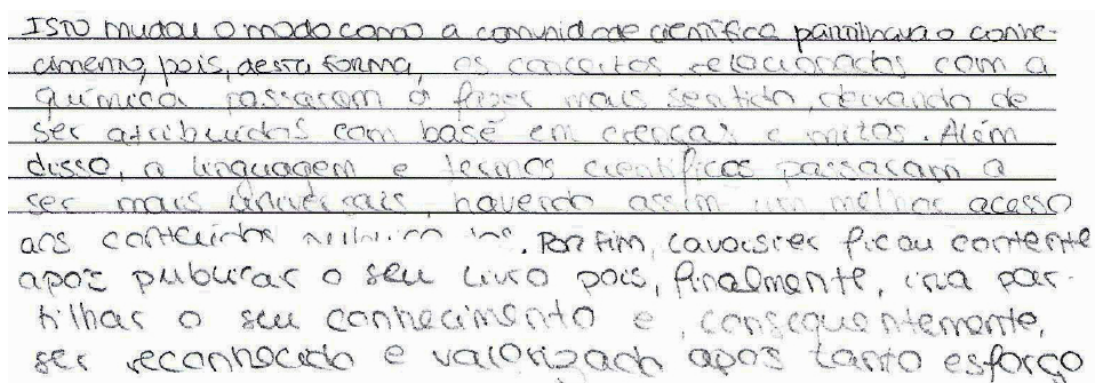 Isto mudou o modo como a comunidade científica partilhava o conhe-
cimento, pois, desta forma, os conceitos relacionados com a
química passaram a fazer mais sentido, deixando de
ser atribuídos com base em crenças e mitos. Além
disso, a linguagem e termos científicos passaram a
ser mais universais, havendo assim um melhor acesso
aos conteúdos. Por fim, Lavoisier ficou contente
após publicar o seu livro pois, finalmente, iria par-
tilhar o seu conhecimento e, consequentemente,
ser reconhecido e valorizado após tanto esforço